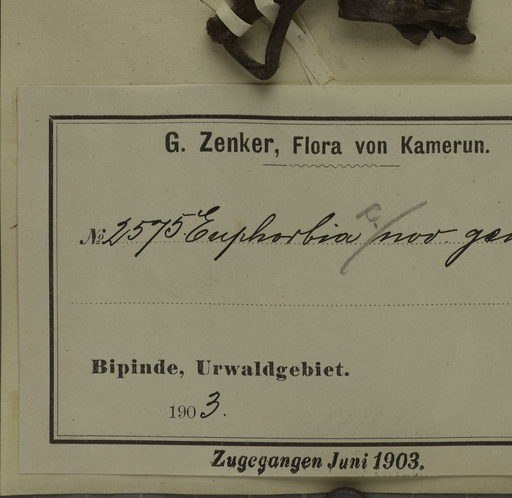 G. Zenker, Flora von Kamerun.
№ 2575 Euphorbiac. / nov. gen
Bipinde, Urwaldgebiet.
1903.
Zugegangen Juni 1903.